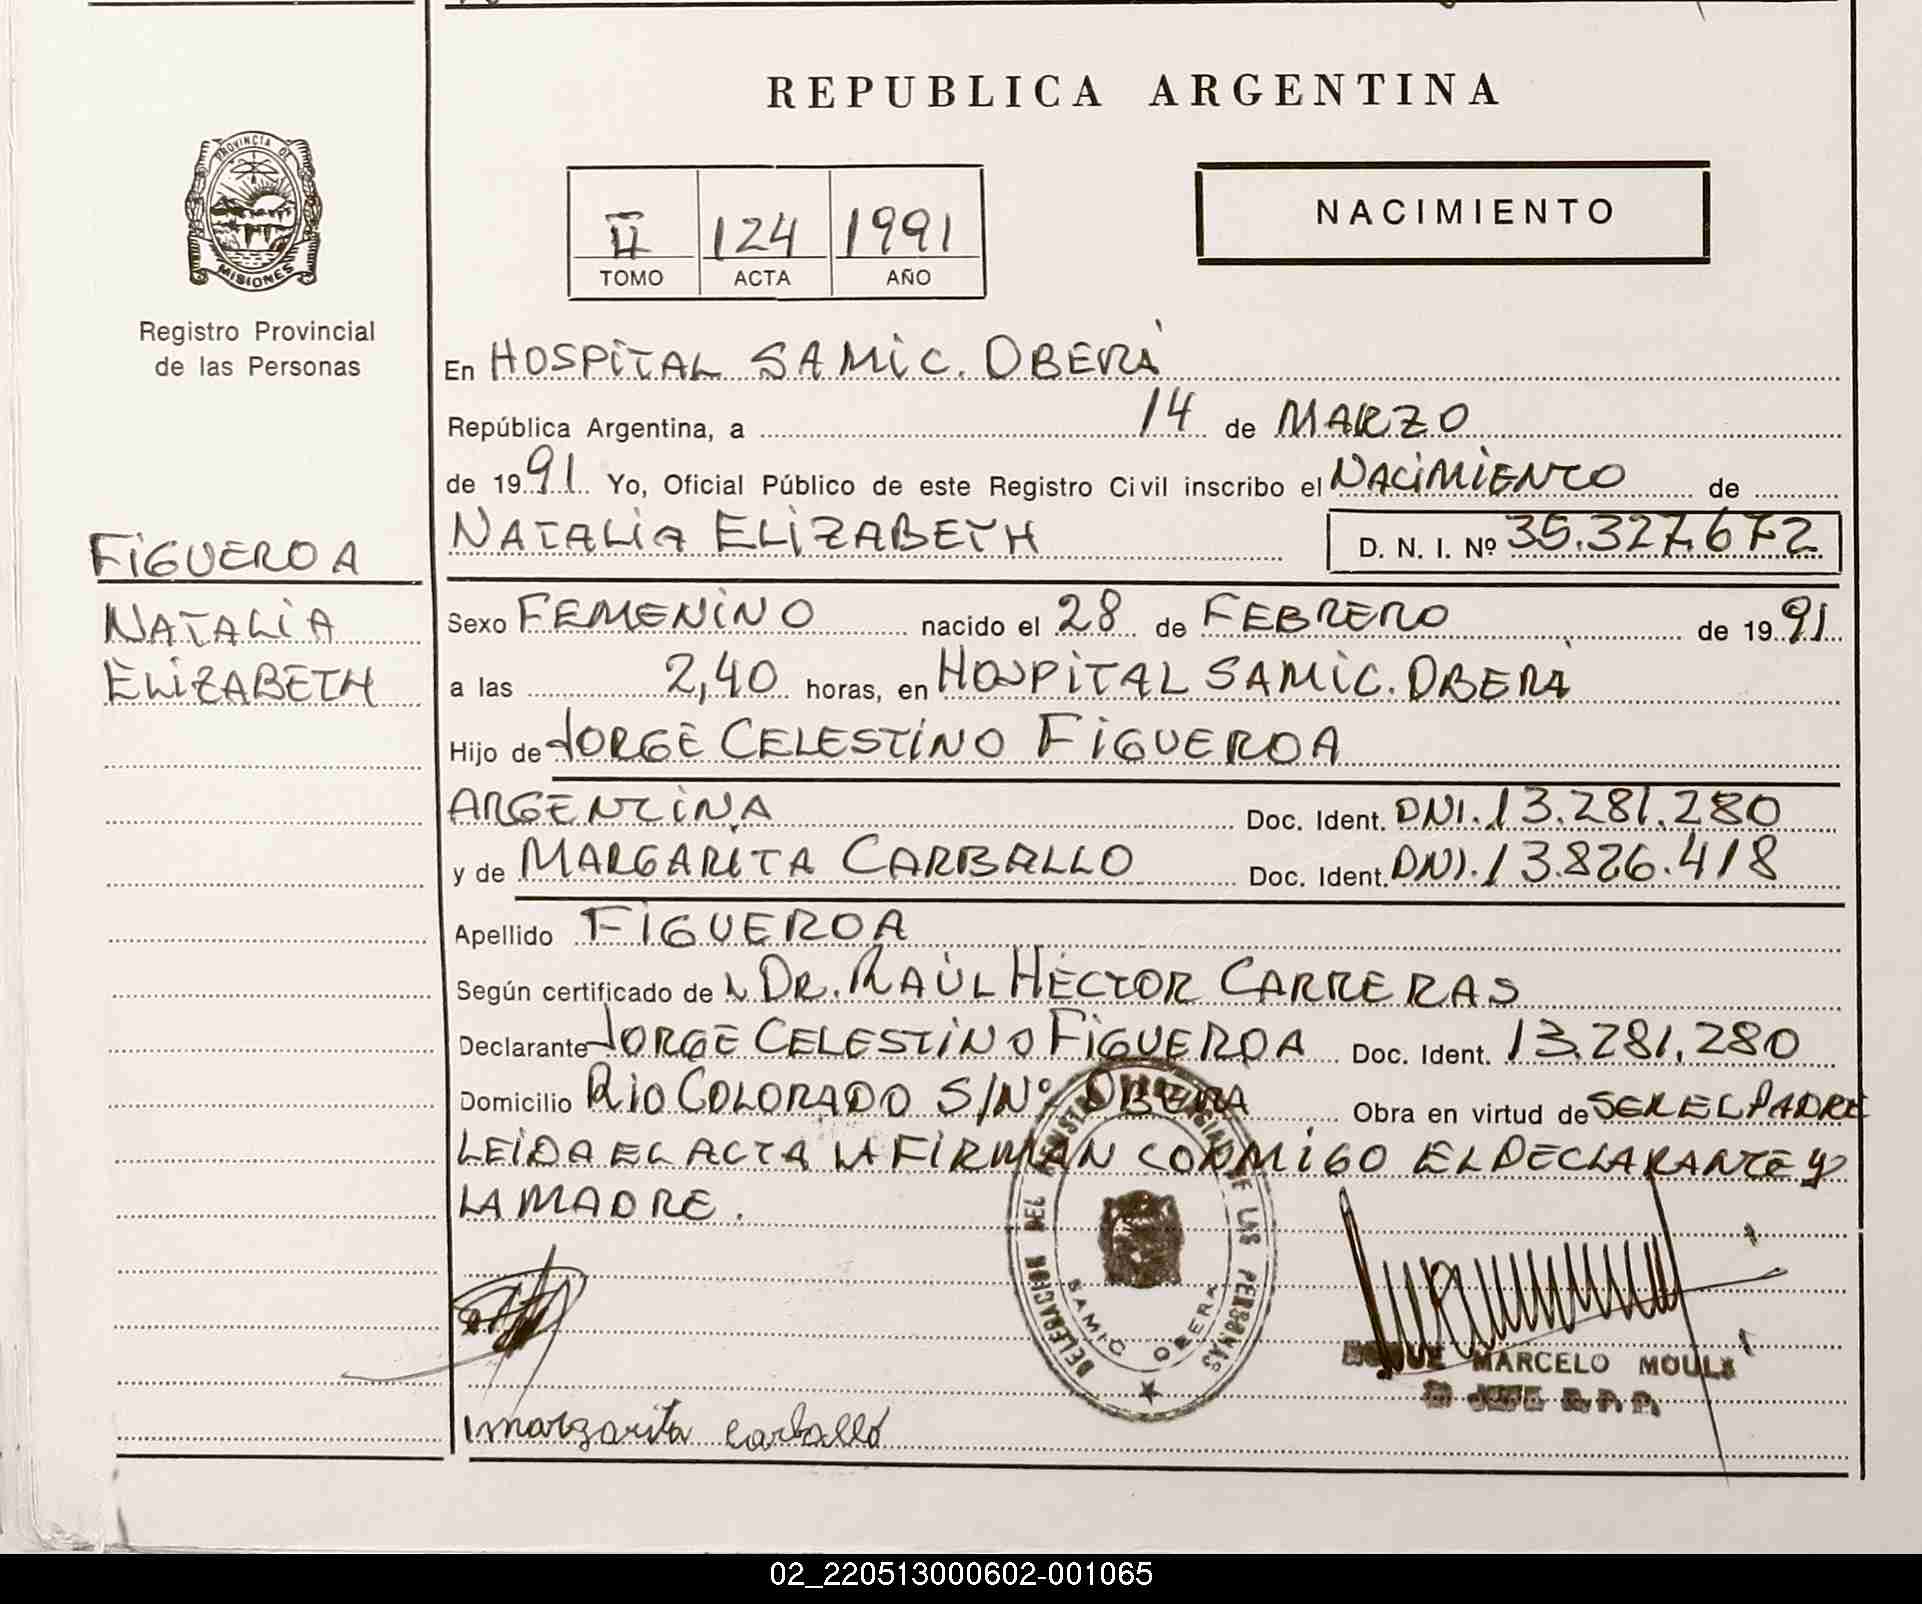 REPUBLICA ARGENTINA
PROVINCIA DE
MISIONES
Registro Provincial
de las Personas
II 124 1991
TOMO ACTA AÑO
NACIMIENTO
En HOSPITAL SAMIC. OBERÁ
República Argentina, a 14 de MARZO
de 1991. Yo, Oficial Público de este Registro Civil inscribo el NACIMIENTO de
NATALIA ELIZABETH D. N. I. Nº 35.327.672
FIGUEROA
NATALIA
ELIZABETH
Sexo FEMENINO nacido el 28 de FEBRERO de 1991
a las 2,40 horas, en HOSPITAL SAMIC. OBERÁ
Hijo de JORGE CELESTINO FIGUEROA
ARGENTINA Doc. Ident. DNI. 13.281.280
y de MARGARITA CARBALLO Doc. Ident. DNI. 13.826.418
Apellido FIGUEROA
Según certificado de DR. RAÚL HÉCTOR CARRERAS
Declarante JORGE CELESTINO FIGUEROA Doc. Ident. 13.281.280
Domicilio RIO COLORADO S/Nº OBERA Obra en virtud de SER EL PADRE
LEIDA EL ACTA LA FIRMAN CONMIGO EL DECLARANTE Y
LA MADRE.
DELEGACION DEL REGISTRO PROVINCIAL DE LAS PERSONAS
SAMIC OBERA
MARCELO
JEFE R.P.P.
margarita carballo
02_220513000602-001065